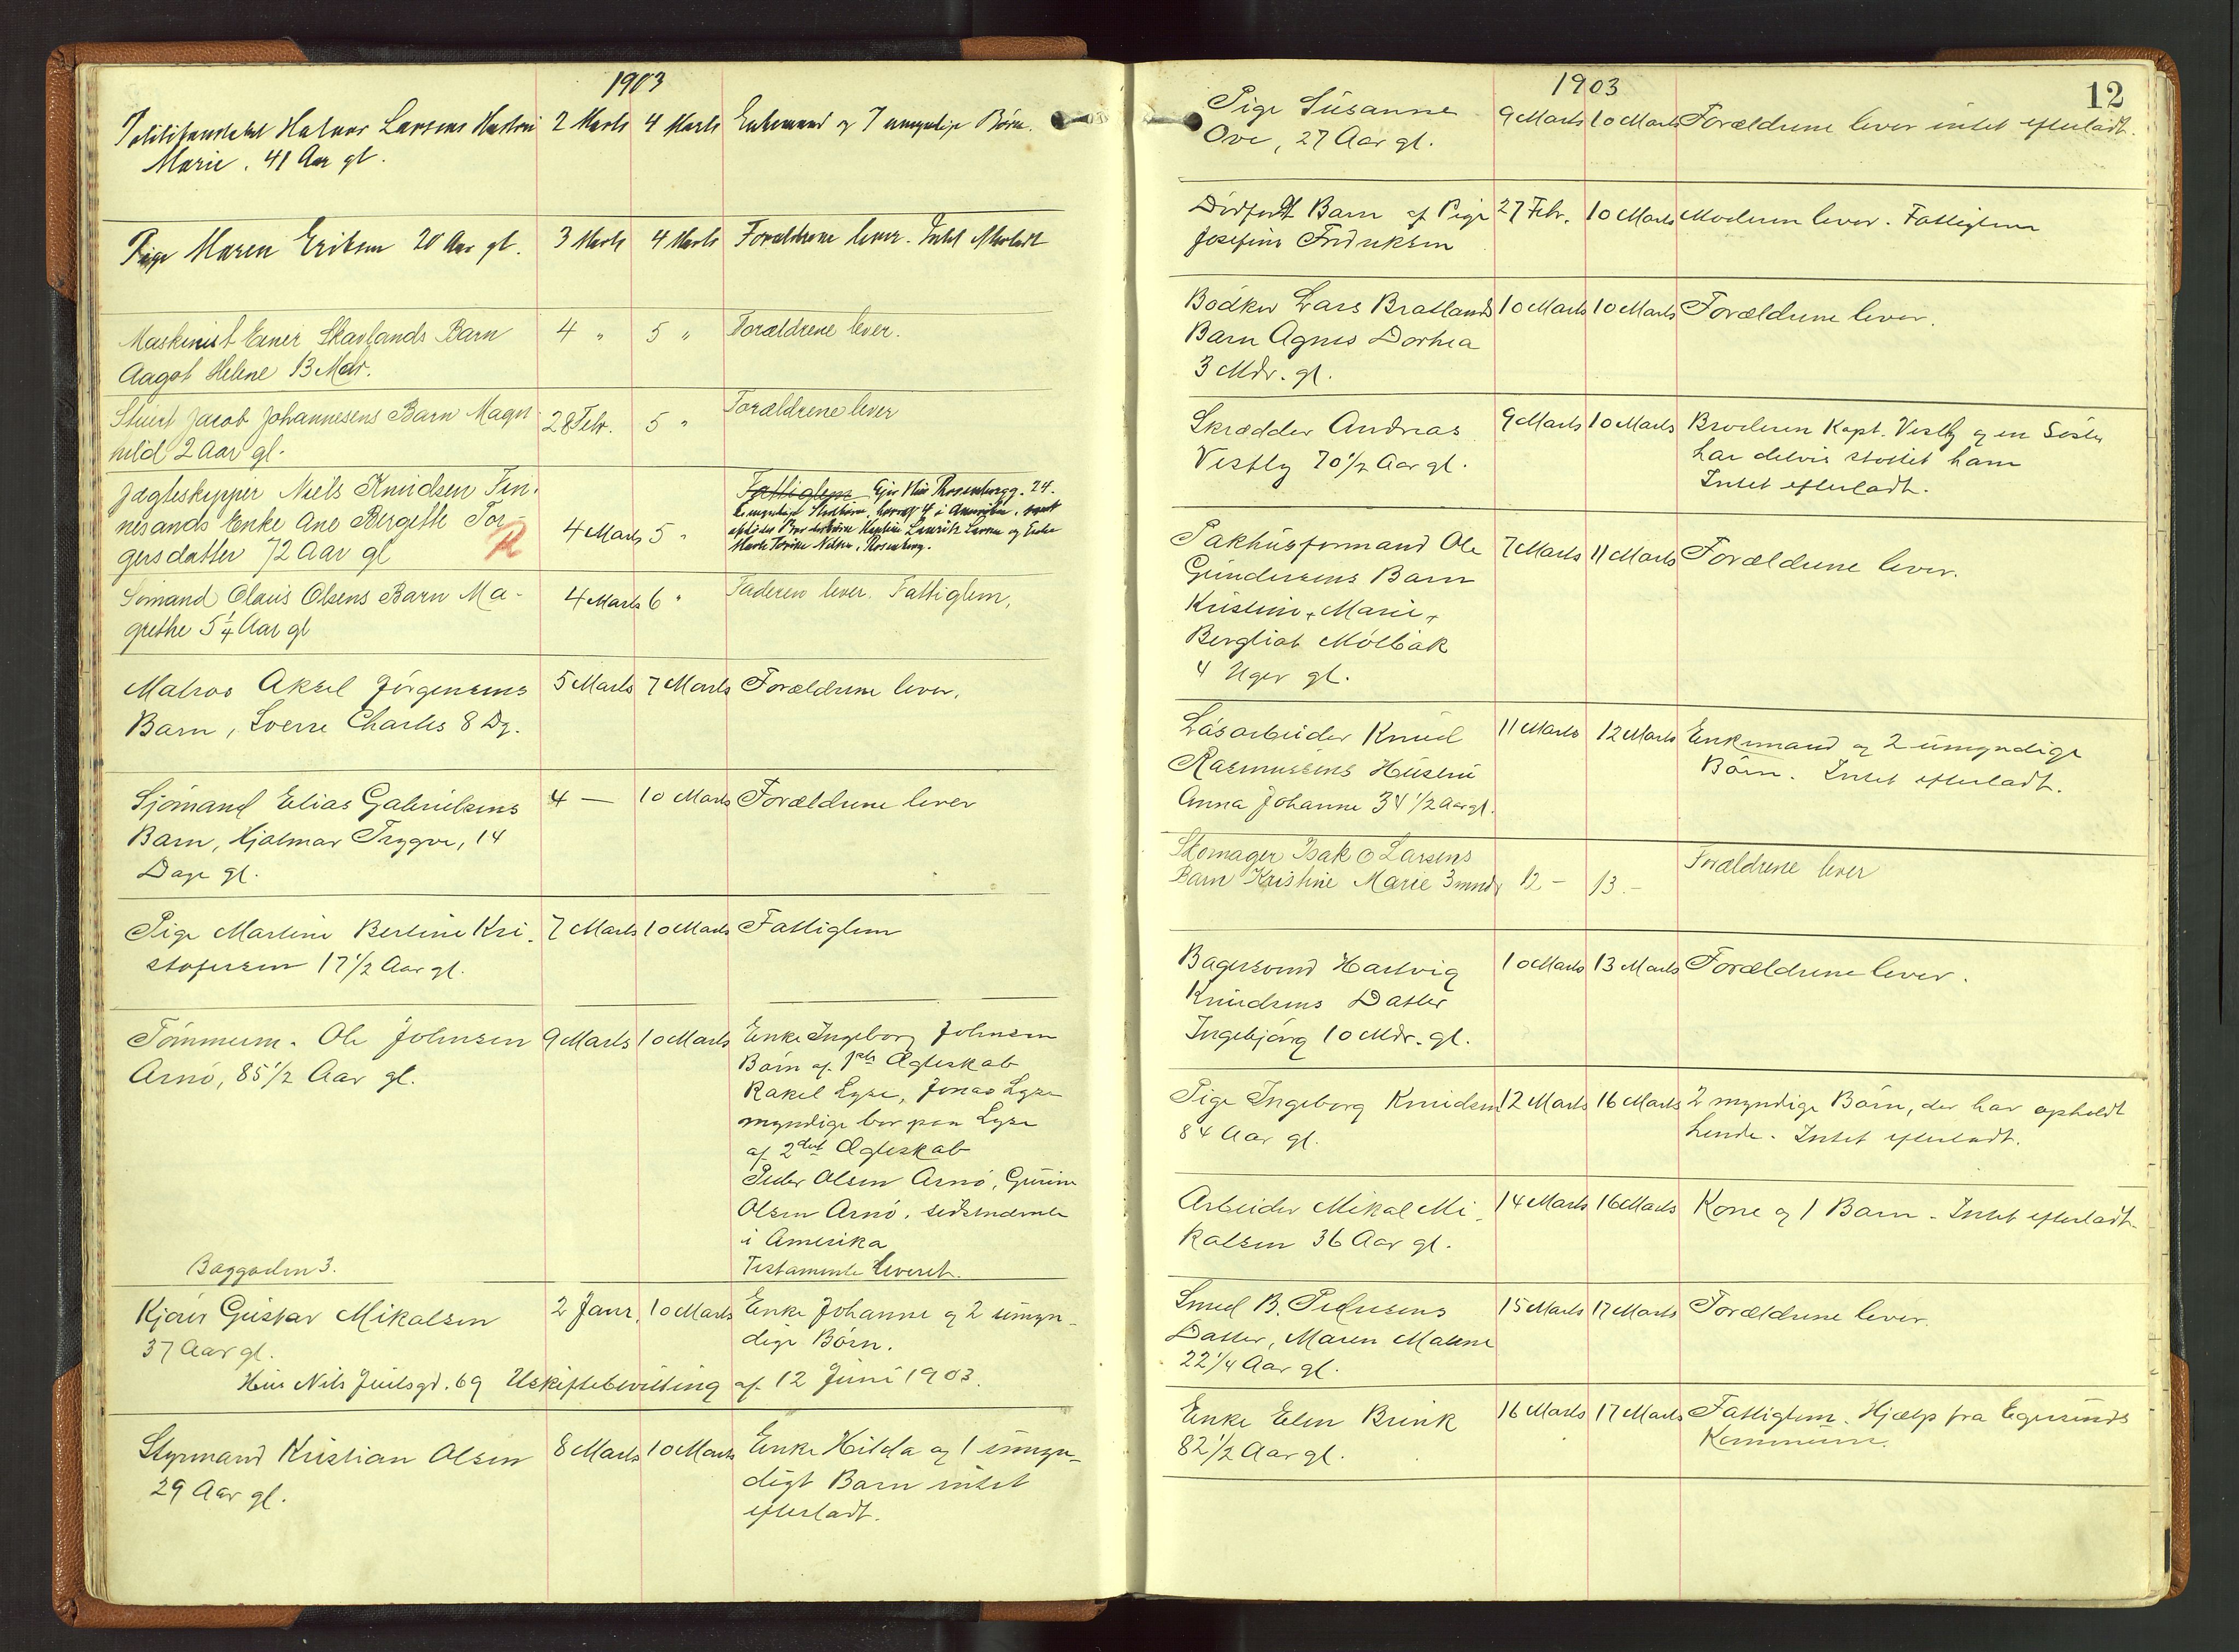 1903
Politikonstabel Halvor Larsens Hustru 2 Marts 4 Marts Enkemand og 7 umyndige Børn.
Marie. 41 Aar gl.
Pige Maren Eriksen 20 Aar gl. 3 Marts 4 Marts Forældrene lever. Intet efterladt
Maskinist Einer Skavlands Barn 4 " 5 " Forældrene lever.
Aagot Helene 13 Mdr.
Stuert Jacob Johannesens Barn Magn- 28 Febr. 5 " Forældrene lever
hild 2 Aar gl.
Jægteskipper Niels Knudsen Fin-
nesands Enke Ane Bergitte Tor-
gersdatter 72 Aar gl R 4 Marts 5 "
Fattiglem. Ejer Hus Rosenbergg. 24.
Marte Tonine Nilsen, Rosenberg.
Sömand Olaus Olsens Barn Ma- 4 Marts 6 " Faderen lever. Fattiglem,
grethe 5 1/4 Aar gl
Matros Aksel Jörgensens 5 Marts 7 Marts Forældrene lever.
Barn, Sverre Charles 8 Dg.
Sjömand Elias Gabrielsens 4 — 10 Marts Forældrene lever
Barn, Hjalmar Trygve, 14
Dage gl.
Pige Martine Bertine Kri- 7 Marts 10 Marts Fattiglem
stofersen 17 1/2 Aar gl.
Tömmerm. Ole Johnsen 9 Marts 10 Marts Enke Ingeborg Johnsen
Arnö, 85 1/2 Aar gl.
Börn af 1ste Ægteskab
Rakel Lyse, Jonas Lyse
myndige bor paa Lyse
af 2det Ægteskab
Peder Olsen Arnö, Gurine
Olsen Arnö, sidstnævnte
i Amerika
Testamente leveret.
Baggaden 3.
Kjörer Gustav Mikalsen 2 Janr. 10 Marts Enke Johanne og 2 umyn-
37 Aar gl. dige Börn.
Hus Nils Juelsgd. 69 Uskiftebevilling af 12 Juni 1903.
Styrmand Kristian Olsen 8 Marts 10 Marts Enke Hilda og 1 umyn-
29 Aar gl. digt Barn intet
efterladt.
1903
12
Pige Susanne 9 Marts 10 Marts Forældrene lever intet efterladt.
Ove, 27 Aar gl.
Dödfödt Barn af Pige 27 Febr. 10 Marts Moderen lever. Fattiglem
Josefine Fredriksen
Bödker Lars Bratlands 10 Marts 10 Marts Forældrene lever.
Barn Agnes Dorhea
3 Mdr. gl.
Skrædder Andreas 9 Marts 10 Marts Broderen Kapt. Vestly og en Söster
Vestly 70 1/2 Aar gl. har delvis stöttet ham
Intet efterladt.
Pakhusformand Ole 7 Marts 11 Marts Forældrene lever.
Gundersens Barn
Kristine, Marie,
Bergliot Mölbak
4 Uger gl.
Lösarbeider Knud 11 Marts 12 Marts Enkemand og 2 umyndige
Rasmussens Hustru Börn. Intet efterladt.
Anna Johanne 34 1/2 Aar gl.
Skomager Isak O Larsens
Barn Kristine Marie 3 mndr 12 - 13 - Forældrene lever
Bagersvend Hartvig 10 Marts 13 Marts Forældrene lever.
Knudsens Datter
Ingebjörg 10 Mdr. gl.
Pige Ingeborg Knudsen 12 Marts 16 Marts 2 myndige Börn, der har opholdt
84 Aar gl. hende. Intet efterladt.
Arbeider Mikal Mi- 14 Marts 16 Marts Kone og 1 Barn. Intet efterladt.
kalsen 36 Aar gl.
Smed B. Pedersens 15 Marts 17 Marts Forældrene lever.
Datter, Maren Malene
22 1/4 Aar gl.
Enke Elen Brink 16 Marts 17 Marts Fattiglem. Hjælp fra Egersunds
82 1/2 Aar gl. Kommune.